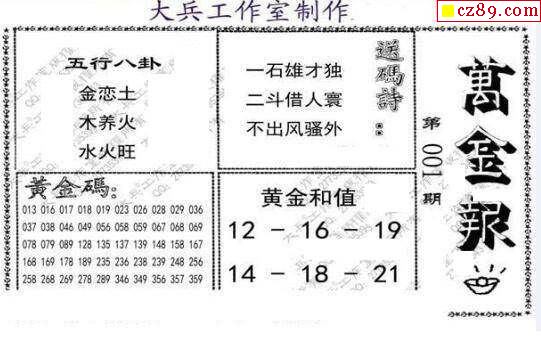 大兵工作室制作
cz89.com
五行八卦
金恋土
木养火
水火旺
送碼詩：
一石雄才独
二斗借人寰
不出风骚外
萬金報
第001期
黃金碼：
013 016 017 018 019 023 026 028 029 036
037 038 046 049 056 058 059 067 068 069
078 079 089 128 135 137 139 147 158 167
168 169 178 189 235 236 237 239 246 256
258 268 269 278 289 346 349 356 357 359
黄金和值
12 － 16 － 19
14 － 18 － 21